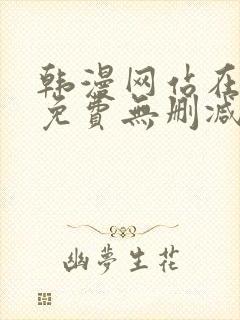 韩漫网站在
免費無删减
幽夢生花